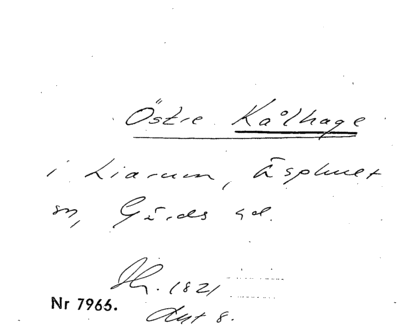 Östre Kålhage
i Liarum, Äsphult
sn, Gärds hd.
Sk. 1821
Nr 7965.
Akt 8.